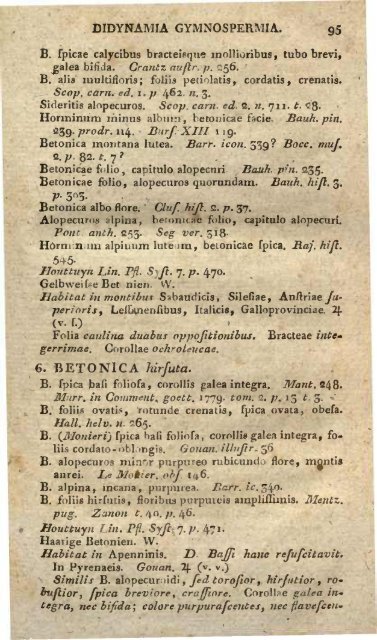 DIDYNAMIA GYMNOSPERMIA. 95
B. ſpicae calycibus bracteisque mollioribus, tubo brevi,
galea bifida. Crantz auſtr. p. 256.
B. alis multifloris; foliis petiolatis, cordatis, crenatis.
Scop. carn. ed. 1. p. 462. n. 3.
Sideritis alopecuros. Scop. carn. ed. 2. n. 711. t. 28.
Horminum minus album, betonicae facie. Bauh. pin.
239. prodr. 114. Burſ. XIII 119.
Betonica montana lutea. Barr. icon. 339? Bocc. muſ.
2. p. 82. t. 7?
Betonicae folio, capitulo alopecuri Bauh. pin. 235.
Betonicae folio, alopecuros quorundam. Bauh. hiſt. 3.
p. 303.
Betonica albo flore. Cluſ. hiſt. 2. p. 37.
Alopecuros alpina, betonicae folio, capitulo alopecuri.
Pont. anth. 253. Seg ver. 318.
Horminum alpinum luteum, betonicae ſpica. Raj. hiſt.
545.
Houttuyn Lin. Pfl. Syſt. 7. p. 470.
Gelbweiſse Betonien. W.
Habitat in montibus Sabaudicis, Sileſiae, Auſtriae ſu-
perioris, Leſſinenſibus, Italicis, Galloprovinciae. ♃
(v. ſ.)
Folia caulina duabus oppoſitionibus. Bracteae inte-
gerrimae. Corollae ochroleucae.
6. BETONICA hirſuta.
B. ſpica baſi folioſa, corollis galea integra. Mant. 248.
Murr. in Comment. goett. 1779. tom. 2. p. 13 t. 3.
B. foliis ovatis, rotunde crenatis, ſpica ovata, obeſa.
Hall. helv. n. 265.
B. (Monieri) ſpica baſi folioſa, corollis galea integra, fo-
liis cordato-oblongis. Gouan. illuſtr. 36
B. alopecuros minor purpureo rubicundo flore, montis
aurei. Le Monier. obſ. 146.
B. alpina, incana, purpurea. Barr. ic. 340.
B. foliis hirſutis, floribus purpureis ampliſſimis. Mentz.
pug. Zanon t. 40. p. 46.
Houttuyn Lin. Pfl. Syſt. 7. p. 471.
Haarige Betonien. W.
Habitat in Apenninis. D. Baſſi hanc reſuſcitavit.
In Pyrenaeis. Gouan. ♃ (v. v.)
Similis B. alopecuroidi, ſed toroſior, hirſutior, ro-
buſtior, ſpica breviore, craſſiore. Corollae galea in-
tegra, nec bifida; colore purpuraſcentes, nec flaveſcen-